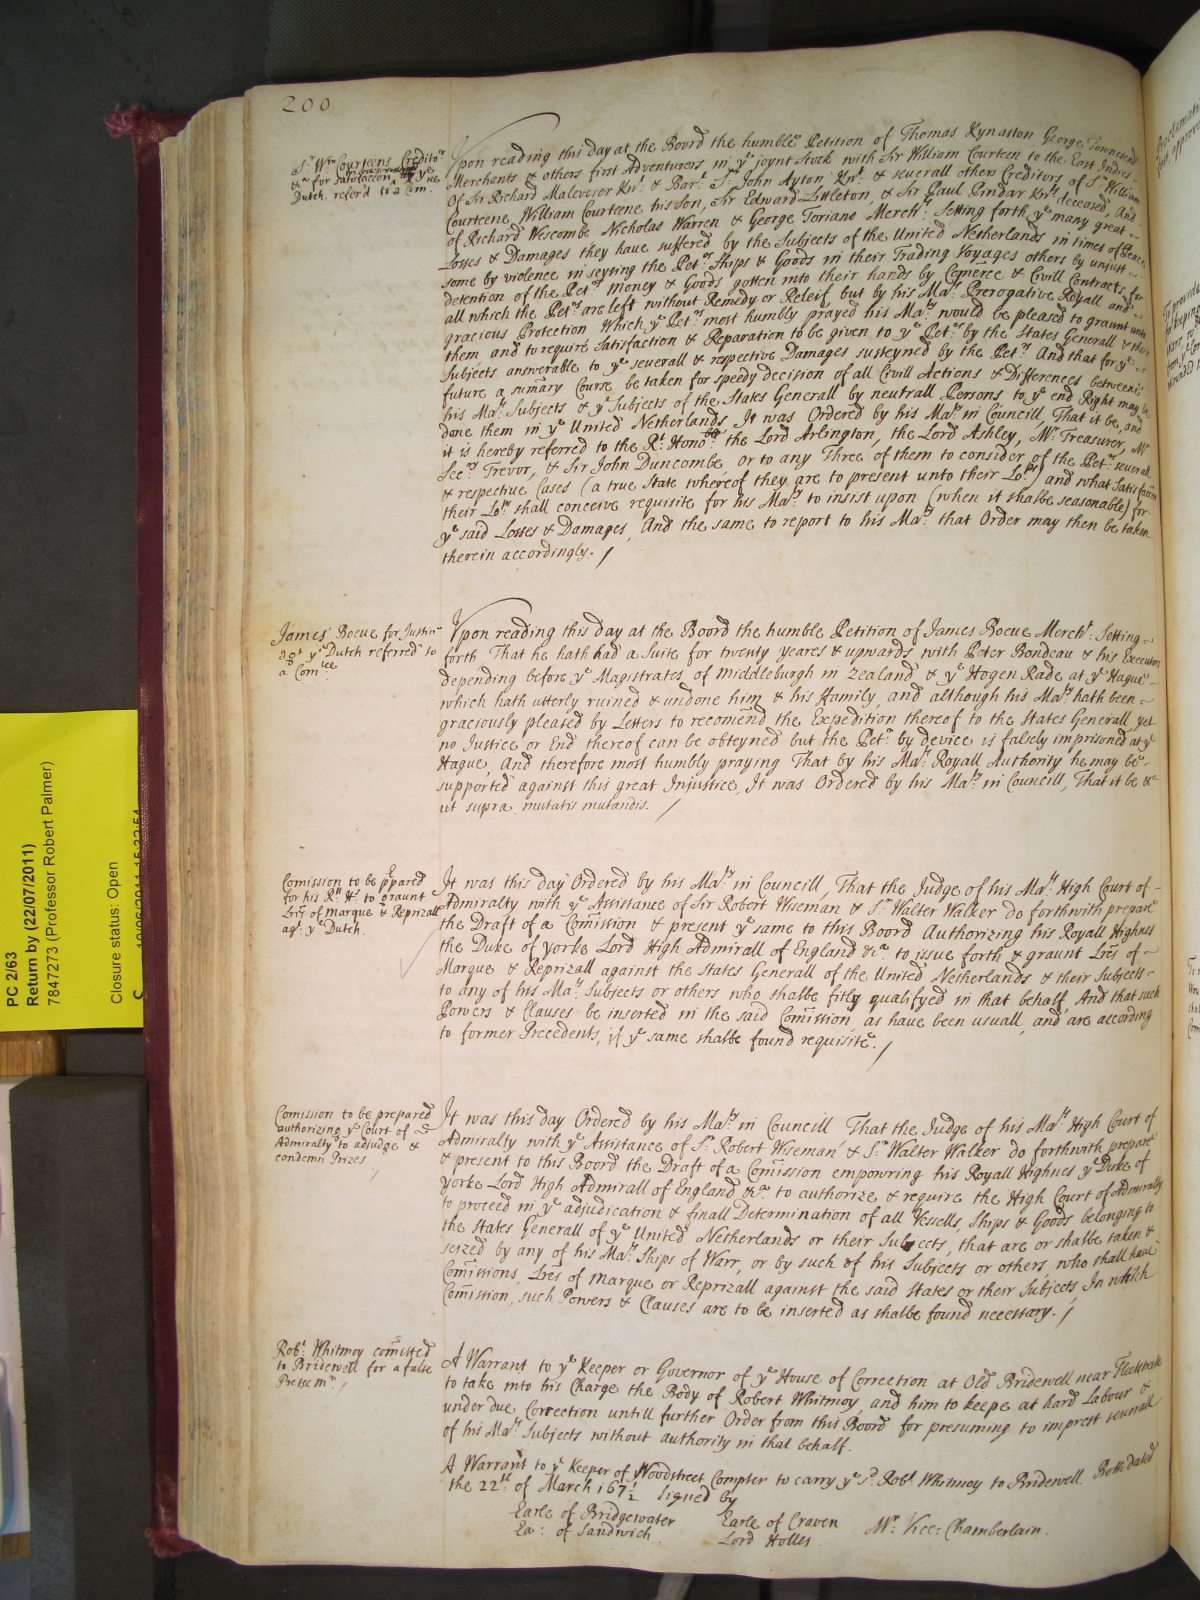 200
Sr. Wm. Courteens Creditors
&ca for satisfaccon
Dutch referd to a Com:
Upon reading this day at the Board the humble Petition of Thomas Kynaston George Townesend
Merchants & others first Adventurers in ye joynt Stock with Sir William Courteen to the East Indies
Of Sir Richard Maleverer Knt. & Bart. Sr. John Ayton Knt. & severall others Creditors of Sr. William
Courteene, William Courteene his son, Sir Edward Littleton, & Sir Paul Pindar Knts. deceased, And
of Richard Wescombe Nicholas Warren & George Toriano Mercht: Setting forth ye many great
Losses & Damages they have suffered by the Subjects of the United Netherlands in times of Peace
some by violence in seyzing the Petrs. Ships & Goods in their Trading Voyages others by unjust
detention of the Petrs. Money & Goods gotten into their hands by Com̄erce & Civill Contracts, for
all which the Petrs. are left without Remedy or Releif, but by his Mats. Prerogative Royall and
gracious Protection Which ye Petrs. most humbly prayed his Maty. would be pleased to graunt unto
them and to require Satisfaction & Reparation to be given to ye Petrs. by the States Generall & their
Subjects answerable to ye severall & respective Damages susteyned by the Petrs. And that for ye
future a sum̄ary Course be taken for speedy decision of all Civill Actions & Differences betweene
his Mats. Subjects & ye Subjects of the States Generall by neutrall Persons to ye end Right may be
done them in ye United Netherlands, It was Ordered by his Maty. in Councill, That it be, and
it is hereby referred to the Rt. Honoble. the Lord Arlington, the Lord Ashley, Mr. Treasurer, Mr.
Secry. Trevor, & Sir John Duncombe, or to any Three of them to consider of the Petrs. severall
& respective Cases (a true State whereof they are to present unto their Lops.) and what Satisfaccon
their Lops. shall conceive requisite for his Maty. to insist upon (when it shalbe seasonable) for
ye said Losses & Damages, And the same to report to his Maty. that Order may then be taken
therein accordingly. /
James Boeue for Justice
agt. ye Dutch referred to
a Comtee.
Upon reading this day at the Board the humble Petition of James Boeue Mercht: Setting
forth That he hath had a Suite for twenty yeares & upwards with Peter Bondeau & his Executors
depending before ye Magistrates of Middleburgh in Zealand & ye Hogen Rade at ye Hague
which hath utterly ruined & undone him & his Family, and although his Maty. hath been
graciously pleased by Letters to recom̄end the Expedition thereof to the States Generall yet
no Justice or End thereof can be obteyned but the Petr. by device is falsely imprisoned at ye
Hague, And therefore most humbly praying That by his Mats. Royall Authority he may be
supported against this great Injustice, It was Ordered by his Maty. in Councill, That it be &c
ut supra mutatis mutandis. /
Com̄ission to be ppared
for his Rll. Hs. to graunt
Lr̄es of Marque & Reprizall
agt. ye Dutch.
It was this day Ordered by his Maty. in Councill, That the Judge of his Mats. High Court of
Admiralty with ye Assistance of Sir Robert Wiseman & Sr. Walter Walker do forthwith prepare
the Draft of a Com̄ission & present ye same to this Board Authorizing his Royall Highnes
the Duke of yorke Lord High Admirall of England &ca. to issue forth & graunt Lr̄es of
Marque & Reprizall against the States Generall of the United Netherlands & their Subjects
to any of his Mats. Subjects or others who shalbe fitly qualifyed in that behalf, And that such
Powers & Clauses be inserted in the said Com̄ission, as have been usuall, and are according
to former Precedents, if ye same shalbe found requisite. /
Com̄ission to be prepared
authorizing ye Court of
Admiralty to adjudge &
condemn Prizes
It was this day Ordered by his Maty. in Councill That the Judge of his Mats. High Court of
Admiralty with ye Assistance of Sr. Robert Wiseman & Sr. Walter Walker do forthwith prepare
& present to this Board the Draft of a Com̄ission empowring his Royall Highnes ye Duke of
yorke Lord High Admirall of England &ca. to authorize & require the High Court of Admiralty
to proceed in ye adjudication & finall Determination of all Vessells, Ships & Goods belonging to
the States Generall of ye United Netherlands or their Subjects, that are or shalbe taken &
seized by any of his Mats. Ships of Warr, or by such of his Subjects or others, who shall have
Com̄issions, Lr̄es of Marque or Reprizall against the said States or their Subjects In which
Com̄ission, such Powers & Clauses are to be inserted as shalbe found necessary. /
Robt. Whitmoy com̄itted
to Bridewell for a false
Presse mr. /
A Warrant to ye Keeper or Governor of ye House of Correction at Old Bridewell near Fleetstreete
to take into his Charge the Body of Robert Whitmoy, and him to keepe at hard Labour &
under due Correction untill further Order from this Board for presuming to imprest severall
of his Mats. Subjects without authority in that behalf.
A Warrant to ye Keeper of Woodstreet Compter to carry ye sd. Robt. Whitmoy to Bridewell. Both dated
the 22th. of March 167½ Signed by
Earle of Bridgewater Earle of Craven Mr. Vice-Chamberlain.
Ea: of Sandwich Lord Holles
PC 2/63
Return by (22/07/2011)
7847273 (Professor Robert Palmer)
Closure status: Open